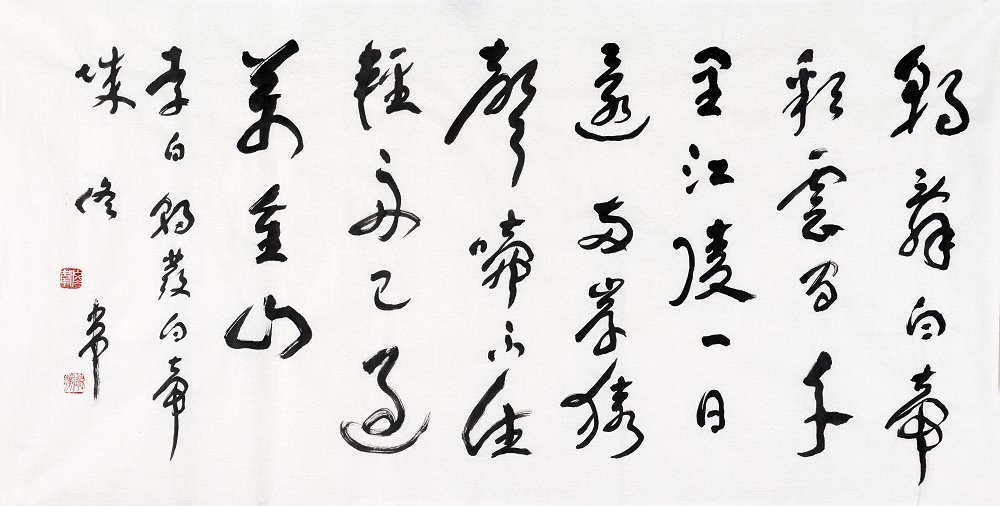 朝辭白帝
彩雲間千
里江陵一日
還兩岸猿
聲啼不住
輕舟已過
萬重山
李白朝發白帝
城